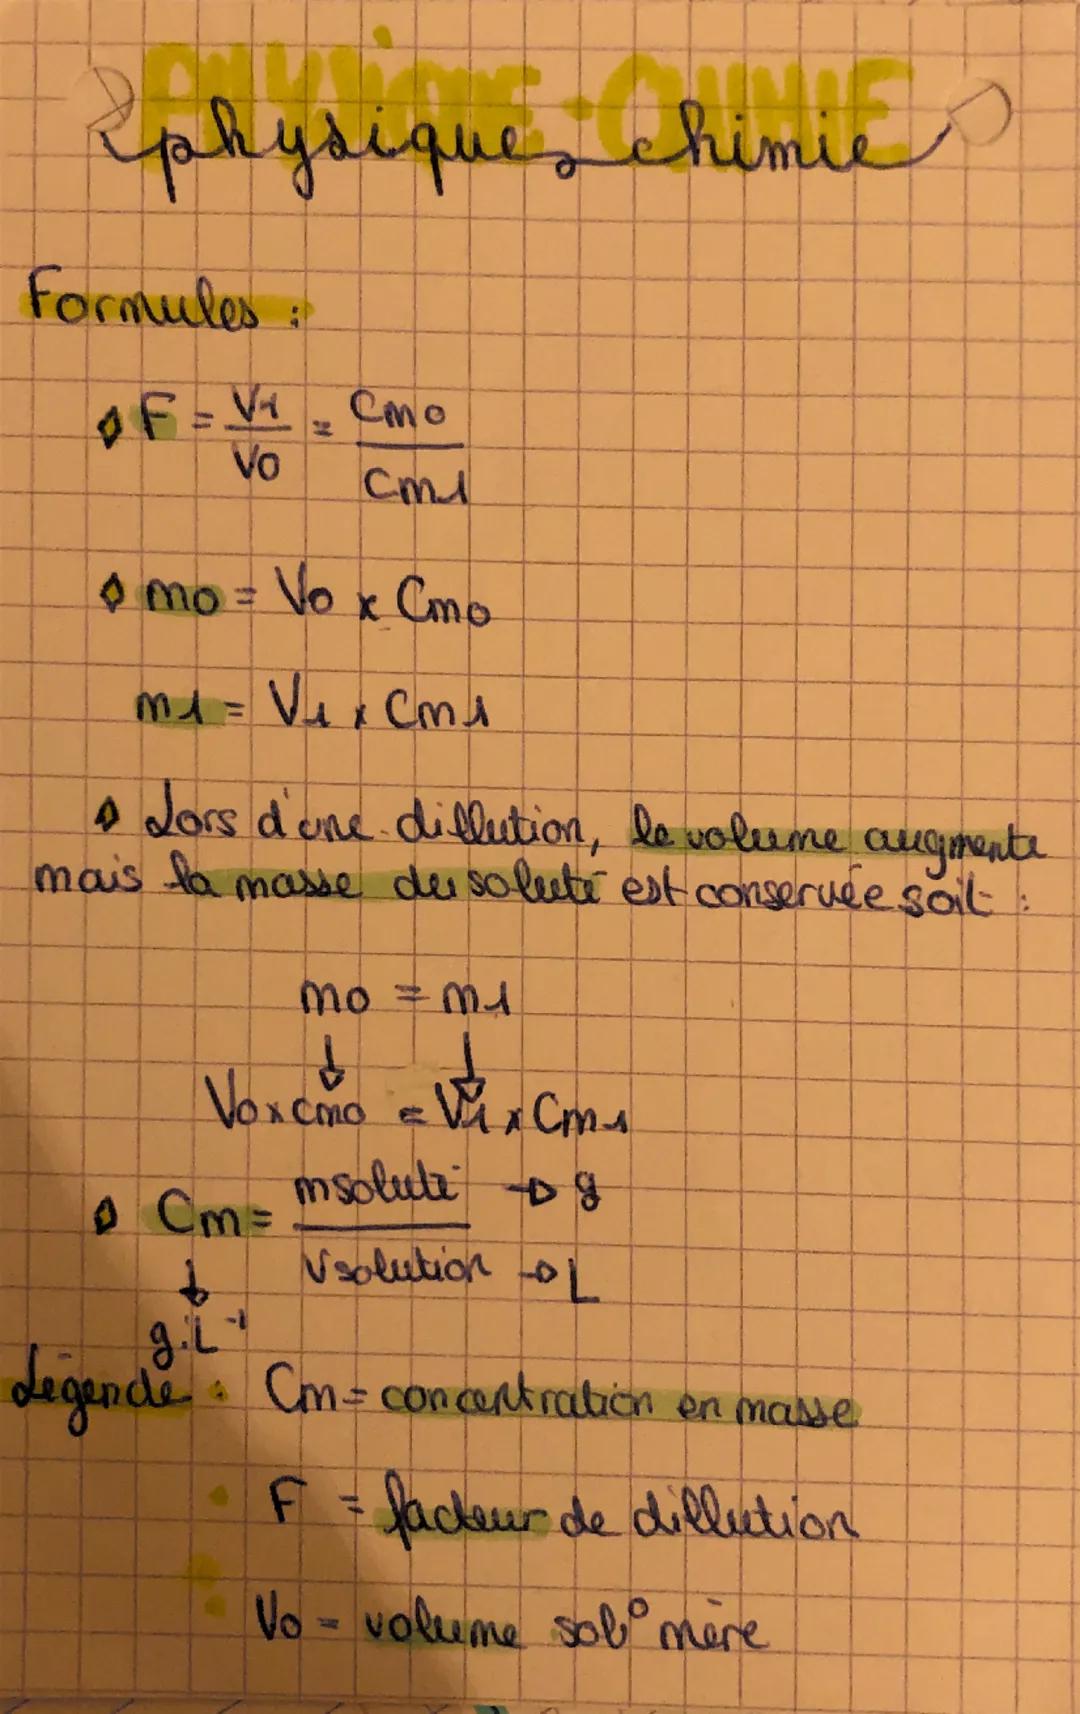 PHYSIQUE-CHIMIE
physique, chimie
Formules :
F = V1/V0 = Cm0/Cm1
m0 = V0 x Cm0
m1 = V1 x Cm1
Lors d'une dillution, le volume augmente
mais la masse du soluté est conservée soit :
m0 = m1
↓ ↓
V0 x cm0 = V1 x Cm1
Cm = msoluté/Vsolution → g → L
↓
g.L⁻¹
Légende : Cm = concentration en masse
F = facteur de dillution
V0 = volume sol° mère